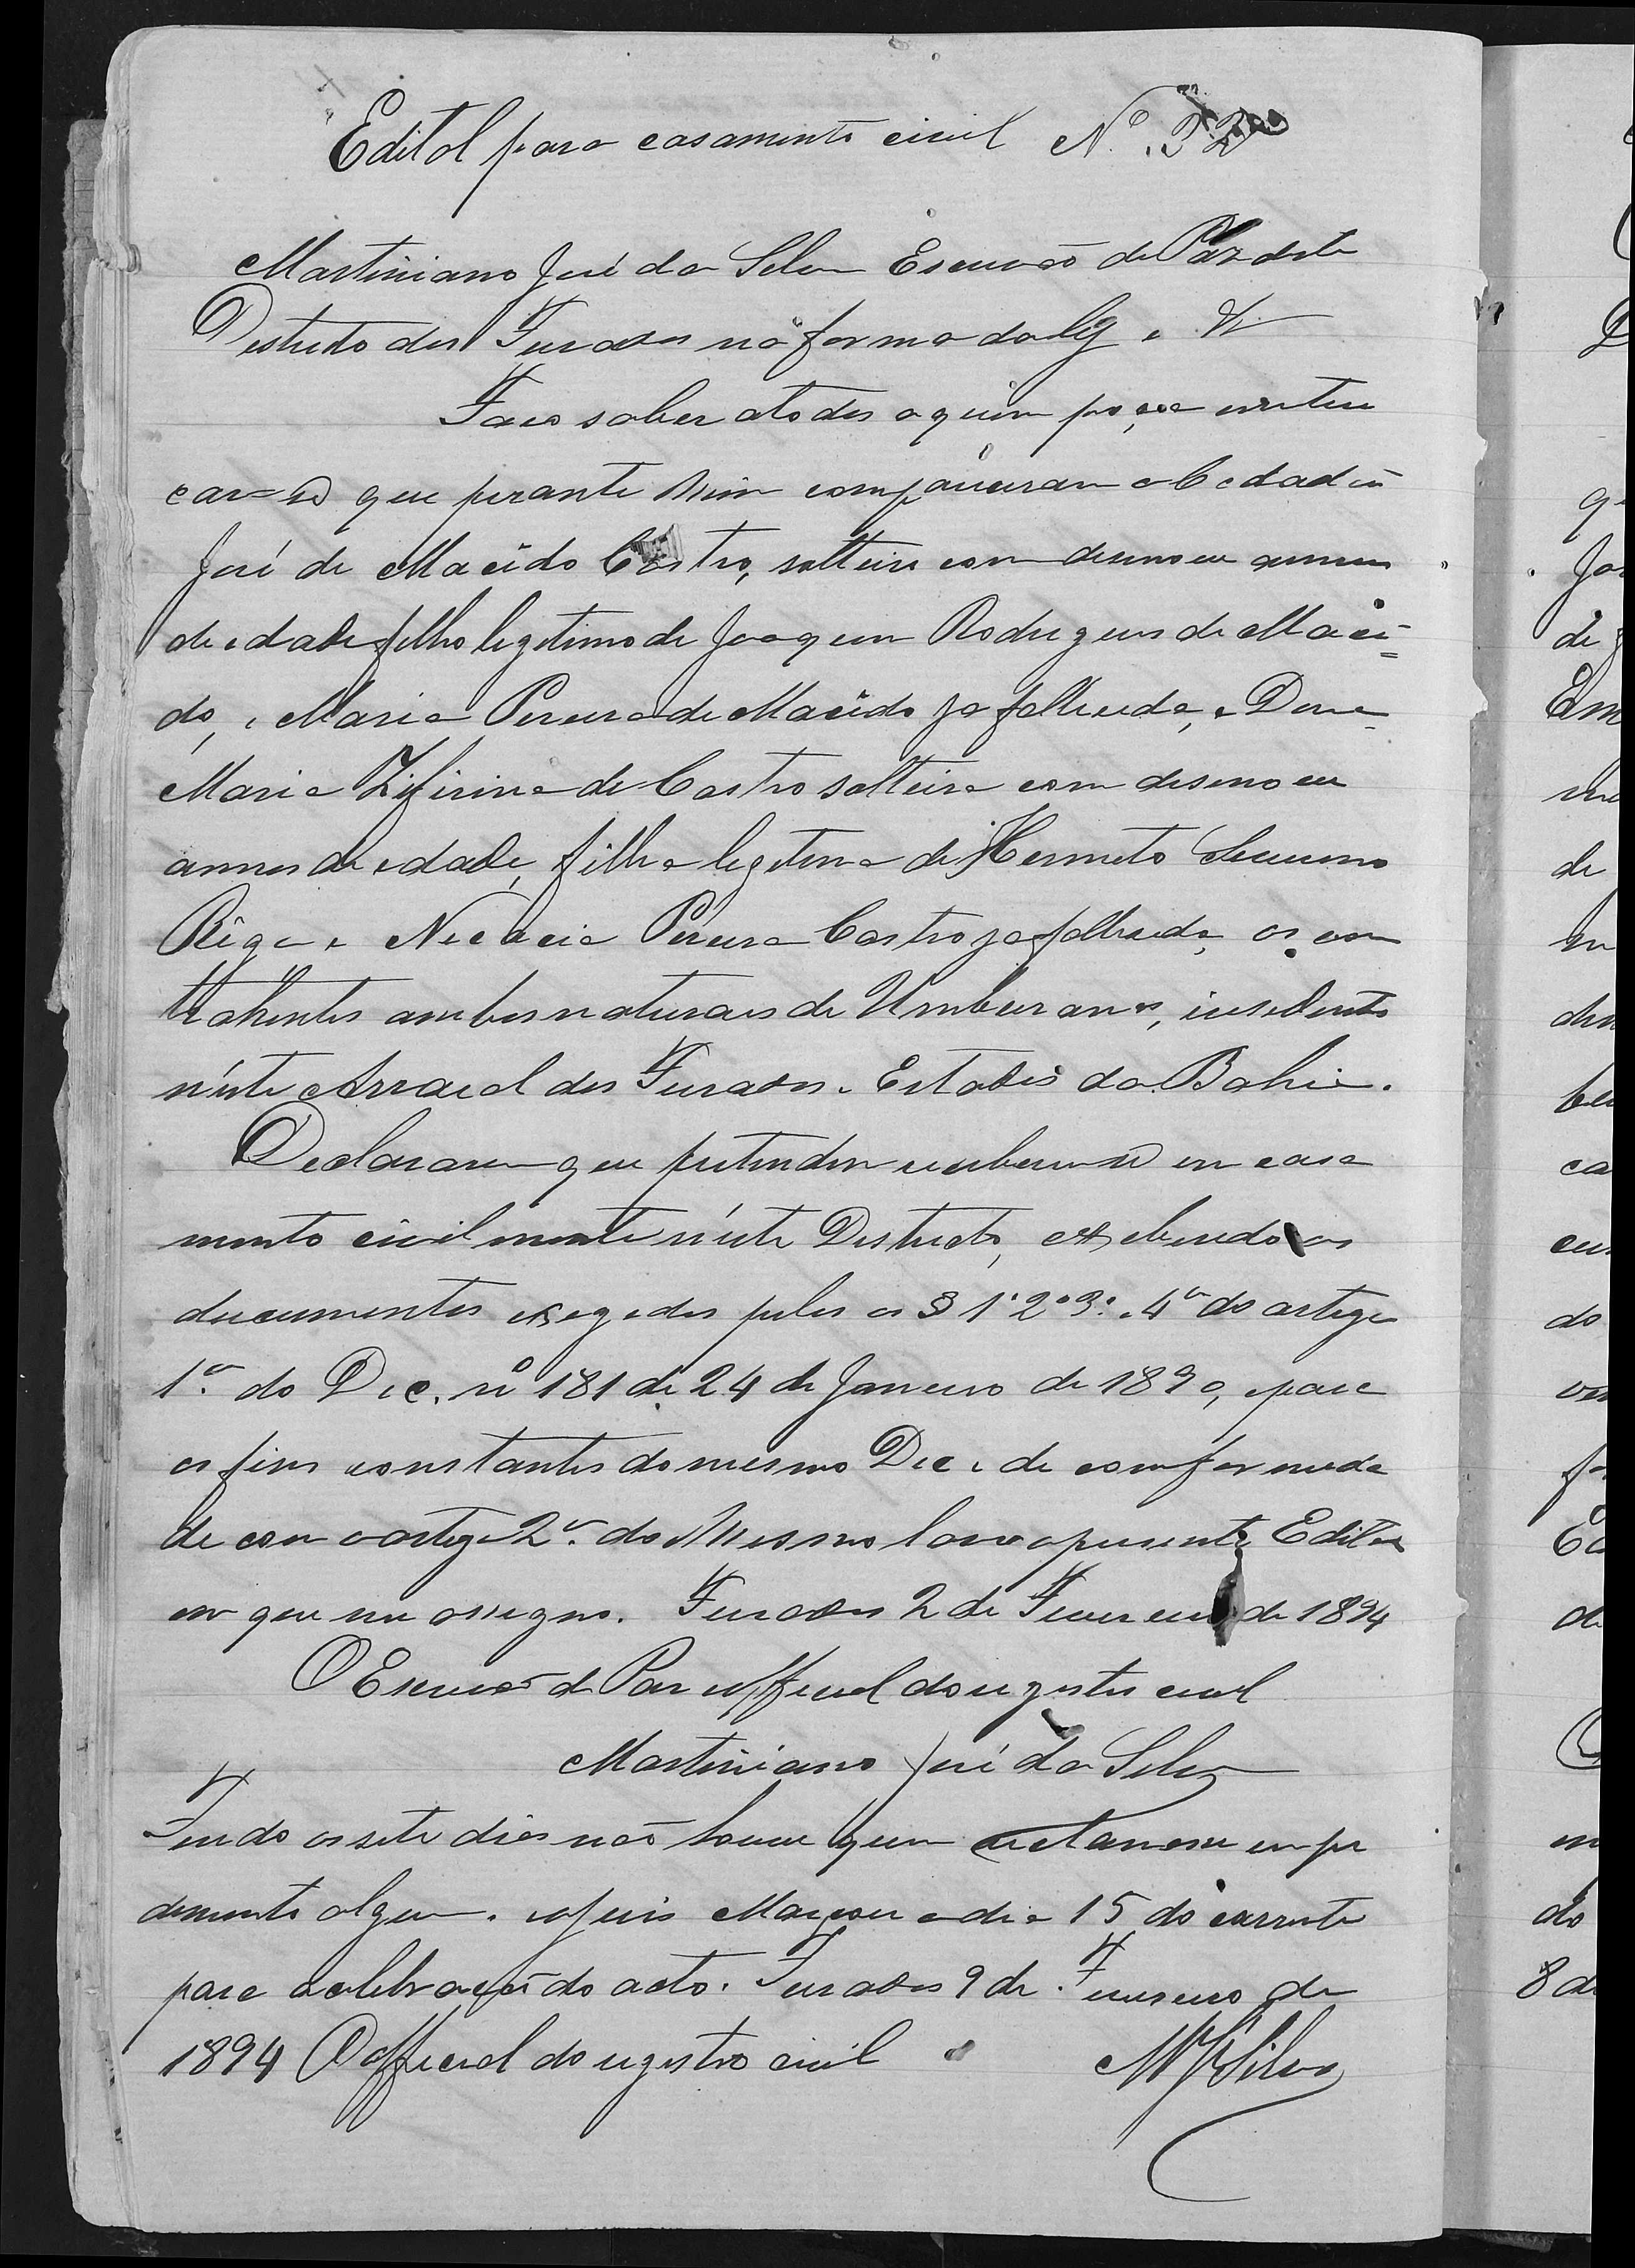 Edital para casamento civil Nº. 32
Martiniano José da Silva Escrivão de Paz deste
Destricto dos Furados na forma da lej &
Faço saber atodos aquem poça enterre
çar-se que perante Mim compareceram o Cedadão
José de Macêdo Castro, solteiro com desenove annos
de edade filho legetimo de Joaquim Rodrigues de Macê=
do, e Maria Pereira de Macêdo ja fallecida, e Dona
Maria Zifirina de Castro solteira com desenove
annos de edade, filha legetima de Hermeto
e Pereira Castro ja fallecida, os con
trahentes ambos naturaes de Umburanas, resedentes
n'este Arraial dos Furados. Estado da Bahia.
Declararam que pretendem receberem-se em casa
mento civilmente n'este Destricto, exebendo os
documentos exegedos pelos os § 1º 2º 3º. e 4º do artego
1º. do Dec. nº 181 de 24 de Janeiro de 1890, e para
os fins constantes do mesmo Dec. e de conformeda
de com o artego 2º. do Mesmo lavro o presente Edital
em que me assegno. Furados 2 de Fevereiro de 1894
O Escrivão de Paz e official do registro civil
Martiniano José da Silva
Findo os sete dias não houve quem empe
demento algum. Marcou o dia 15 do corrente
para acelebração do acto. Furados 9 de Fevereiro de
1894 O official do registro civil MJSilva